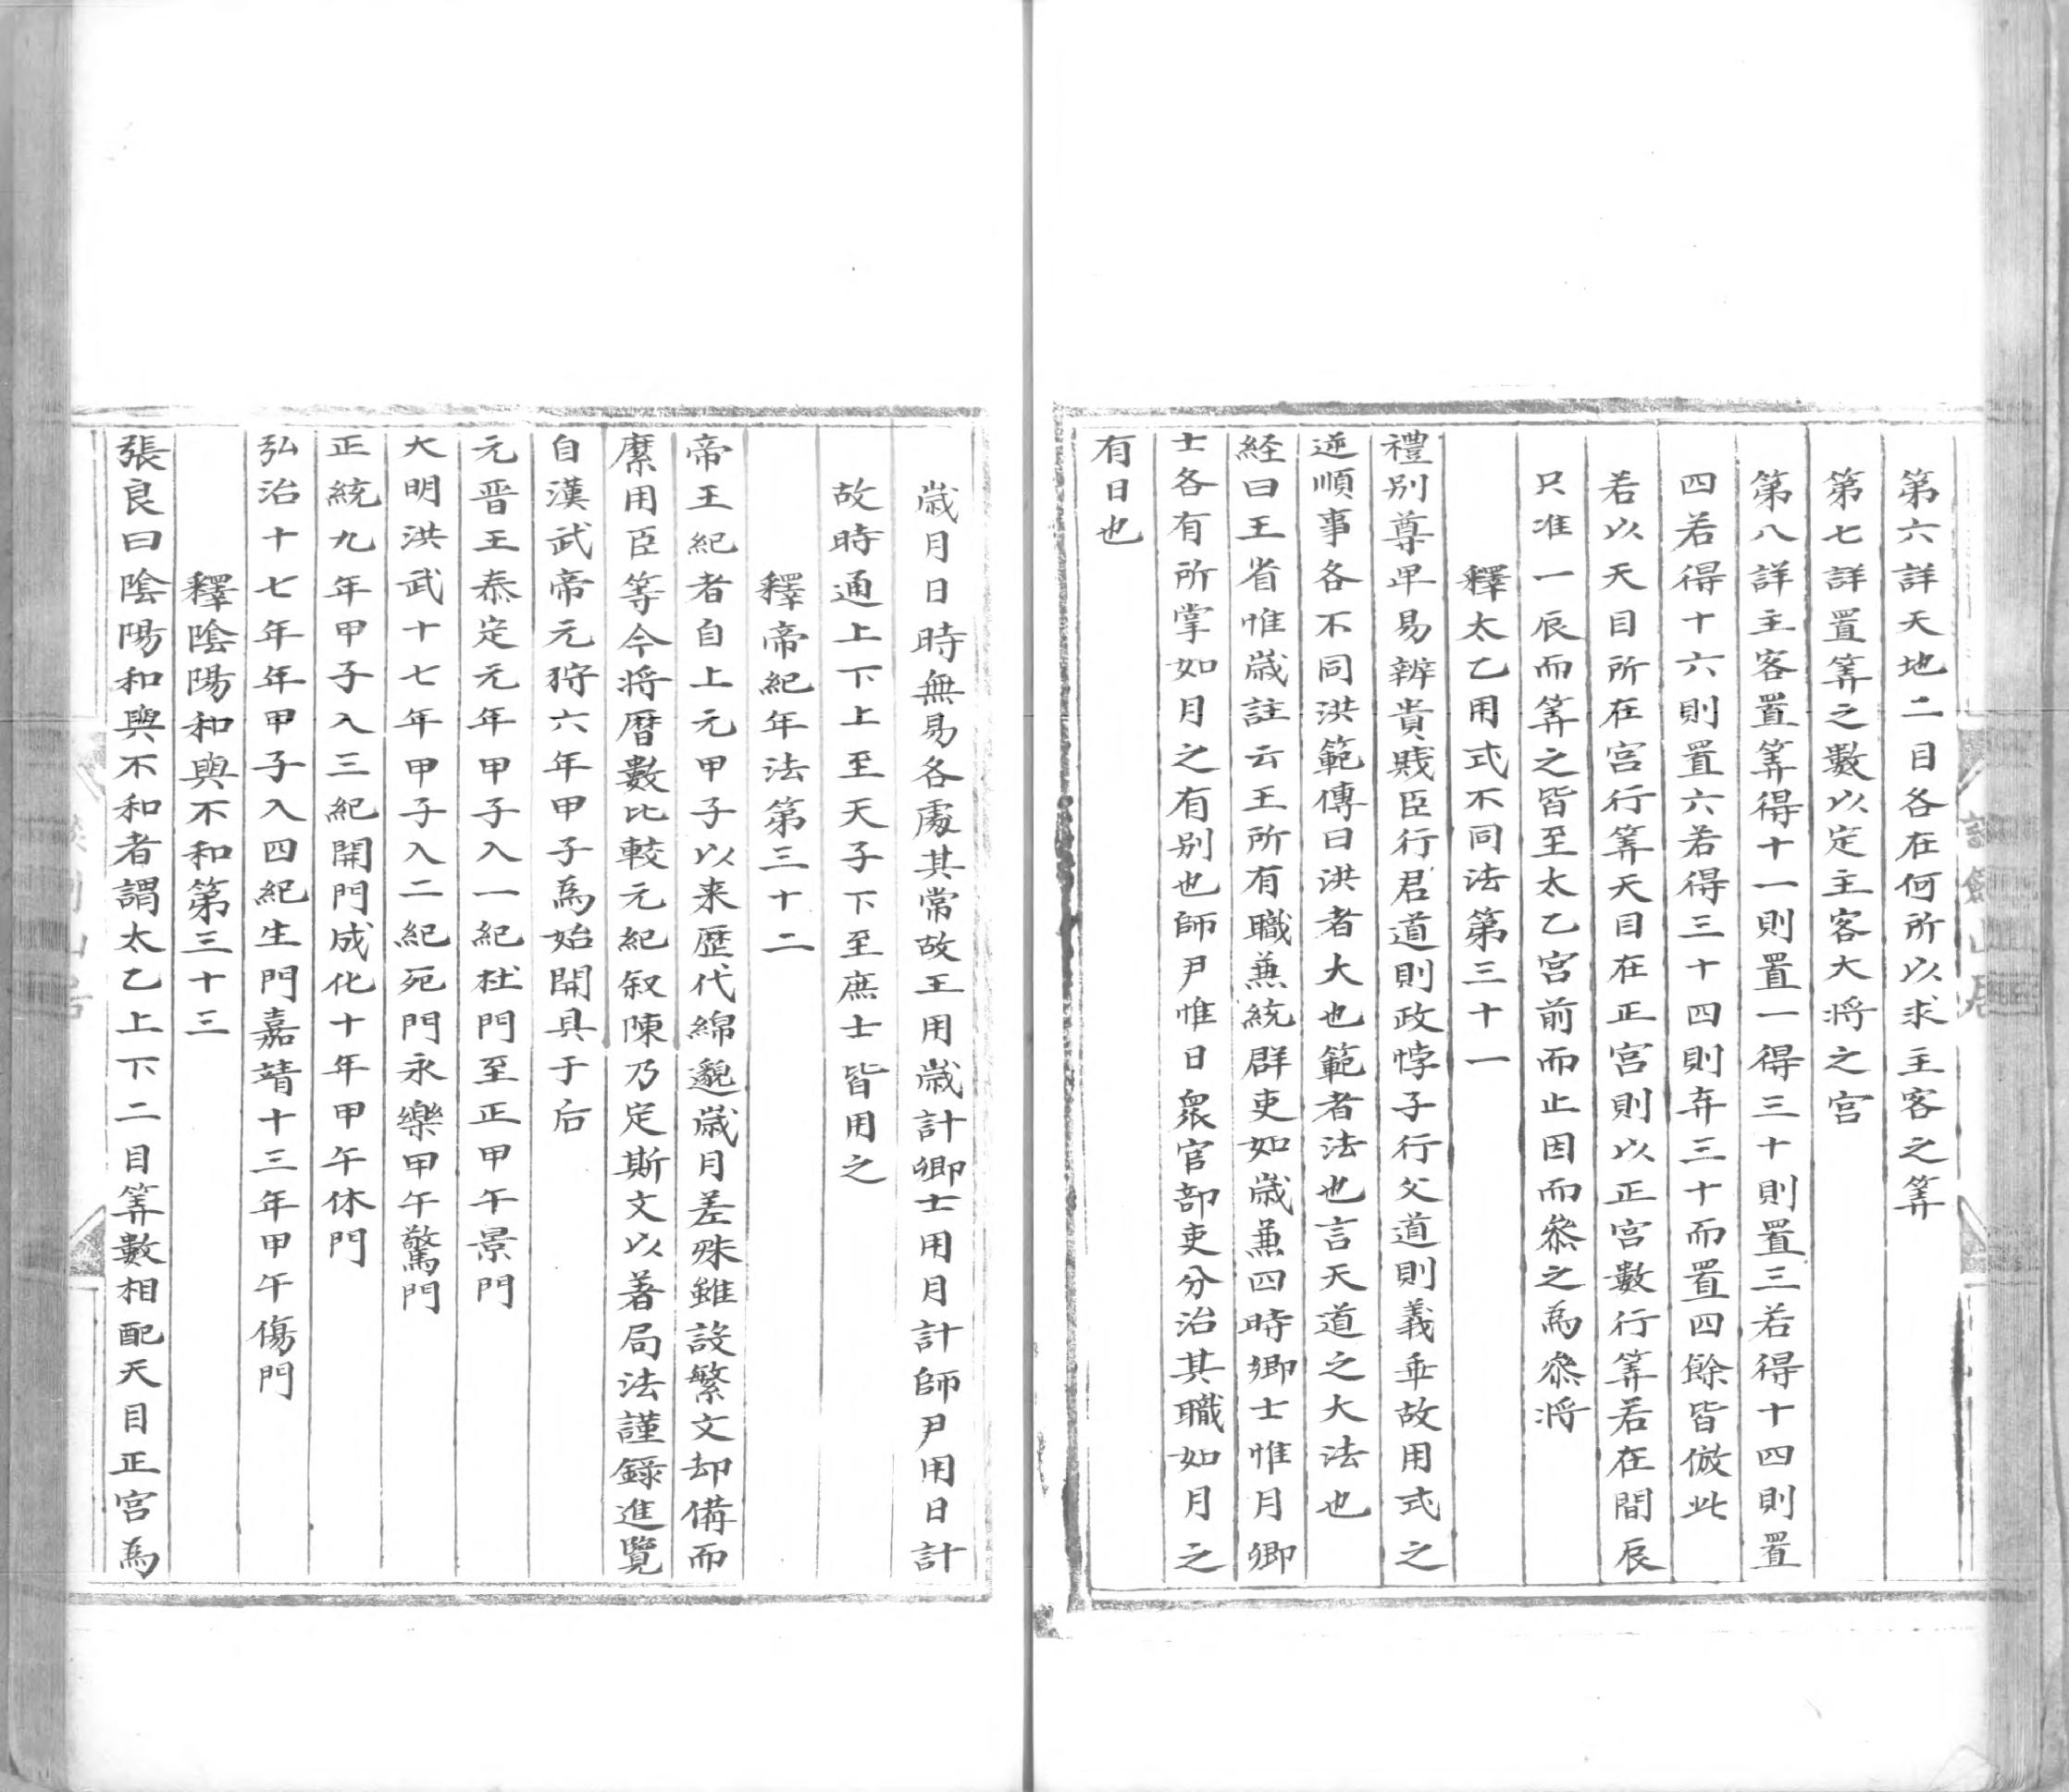 第六詳天地二目各在何所以求主客之筭
第七詳置筭之數以定主客大将之宫
第八詳主客置筭得十一則置一得三十則置三若得十四則置
四若得十六則置六若得三十四則弃三十而置四餘皆倣此
若以天目所在宫行筭天目在正宫則以正宫數行筭若在間辰
只准一辰而筭之皆至太乙宫前而止因而叅之為叅将
釋太乙用式不同法第三十一
禮别尊卑易辨貴賤臣行君道則政悖子行父道則義乖故用式之
逆順事各不同洪範傳曰洪者大也範者法也言天道之大法也
経曰王省惟歳註云王所有職兼統群吏如歳兼四時卿士惟月卿
士各有所掌如月之有别也師尹惟日衆官部吏分治其職如月之
有日也
歳月日時無易各處其常故王用歳計卿士用月計師尹用日計
故時通上下上至天子下至庶士皆用之
釋帝紀年法第三十二
帝王紀者自上元甲子以来歴代綿邈歳月差殊雖設繁文却備而
縻用臣等今将曆數比較元紀叙陳乃定斯文以著局法謹錄進覽
自漢武帝元狩六年甲子為始開具于后
元晋王泰定元年甲子入一紀杜門至正甲午景門
大明洪武十七年甲子入二紀死門永樂甲午驚門
正統九年甲子入三紀開門成化十年甲午休門
弘治十七年年甲子入四紀生門嘉靖十三年甲午傷門
釋陰陽和與不和第三十三
張良曰陰陽和與不和者謂太乙上下二目筭數相配天目正宫為